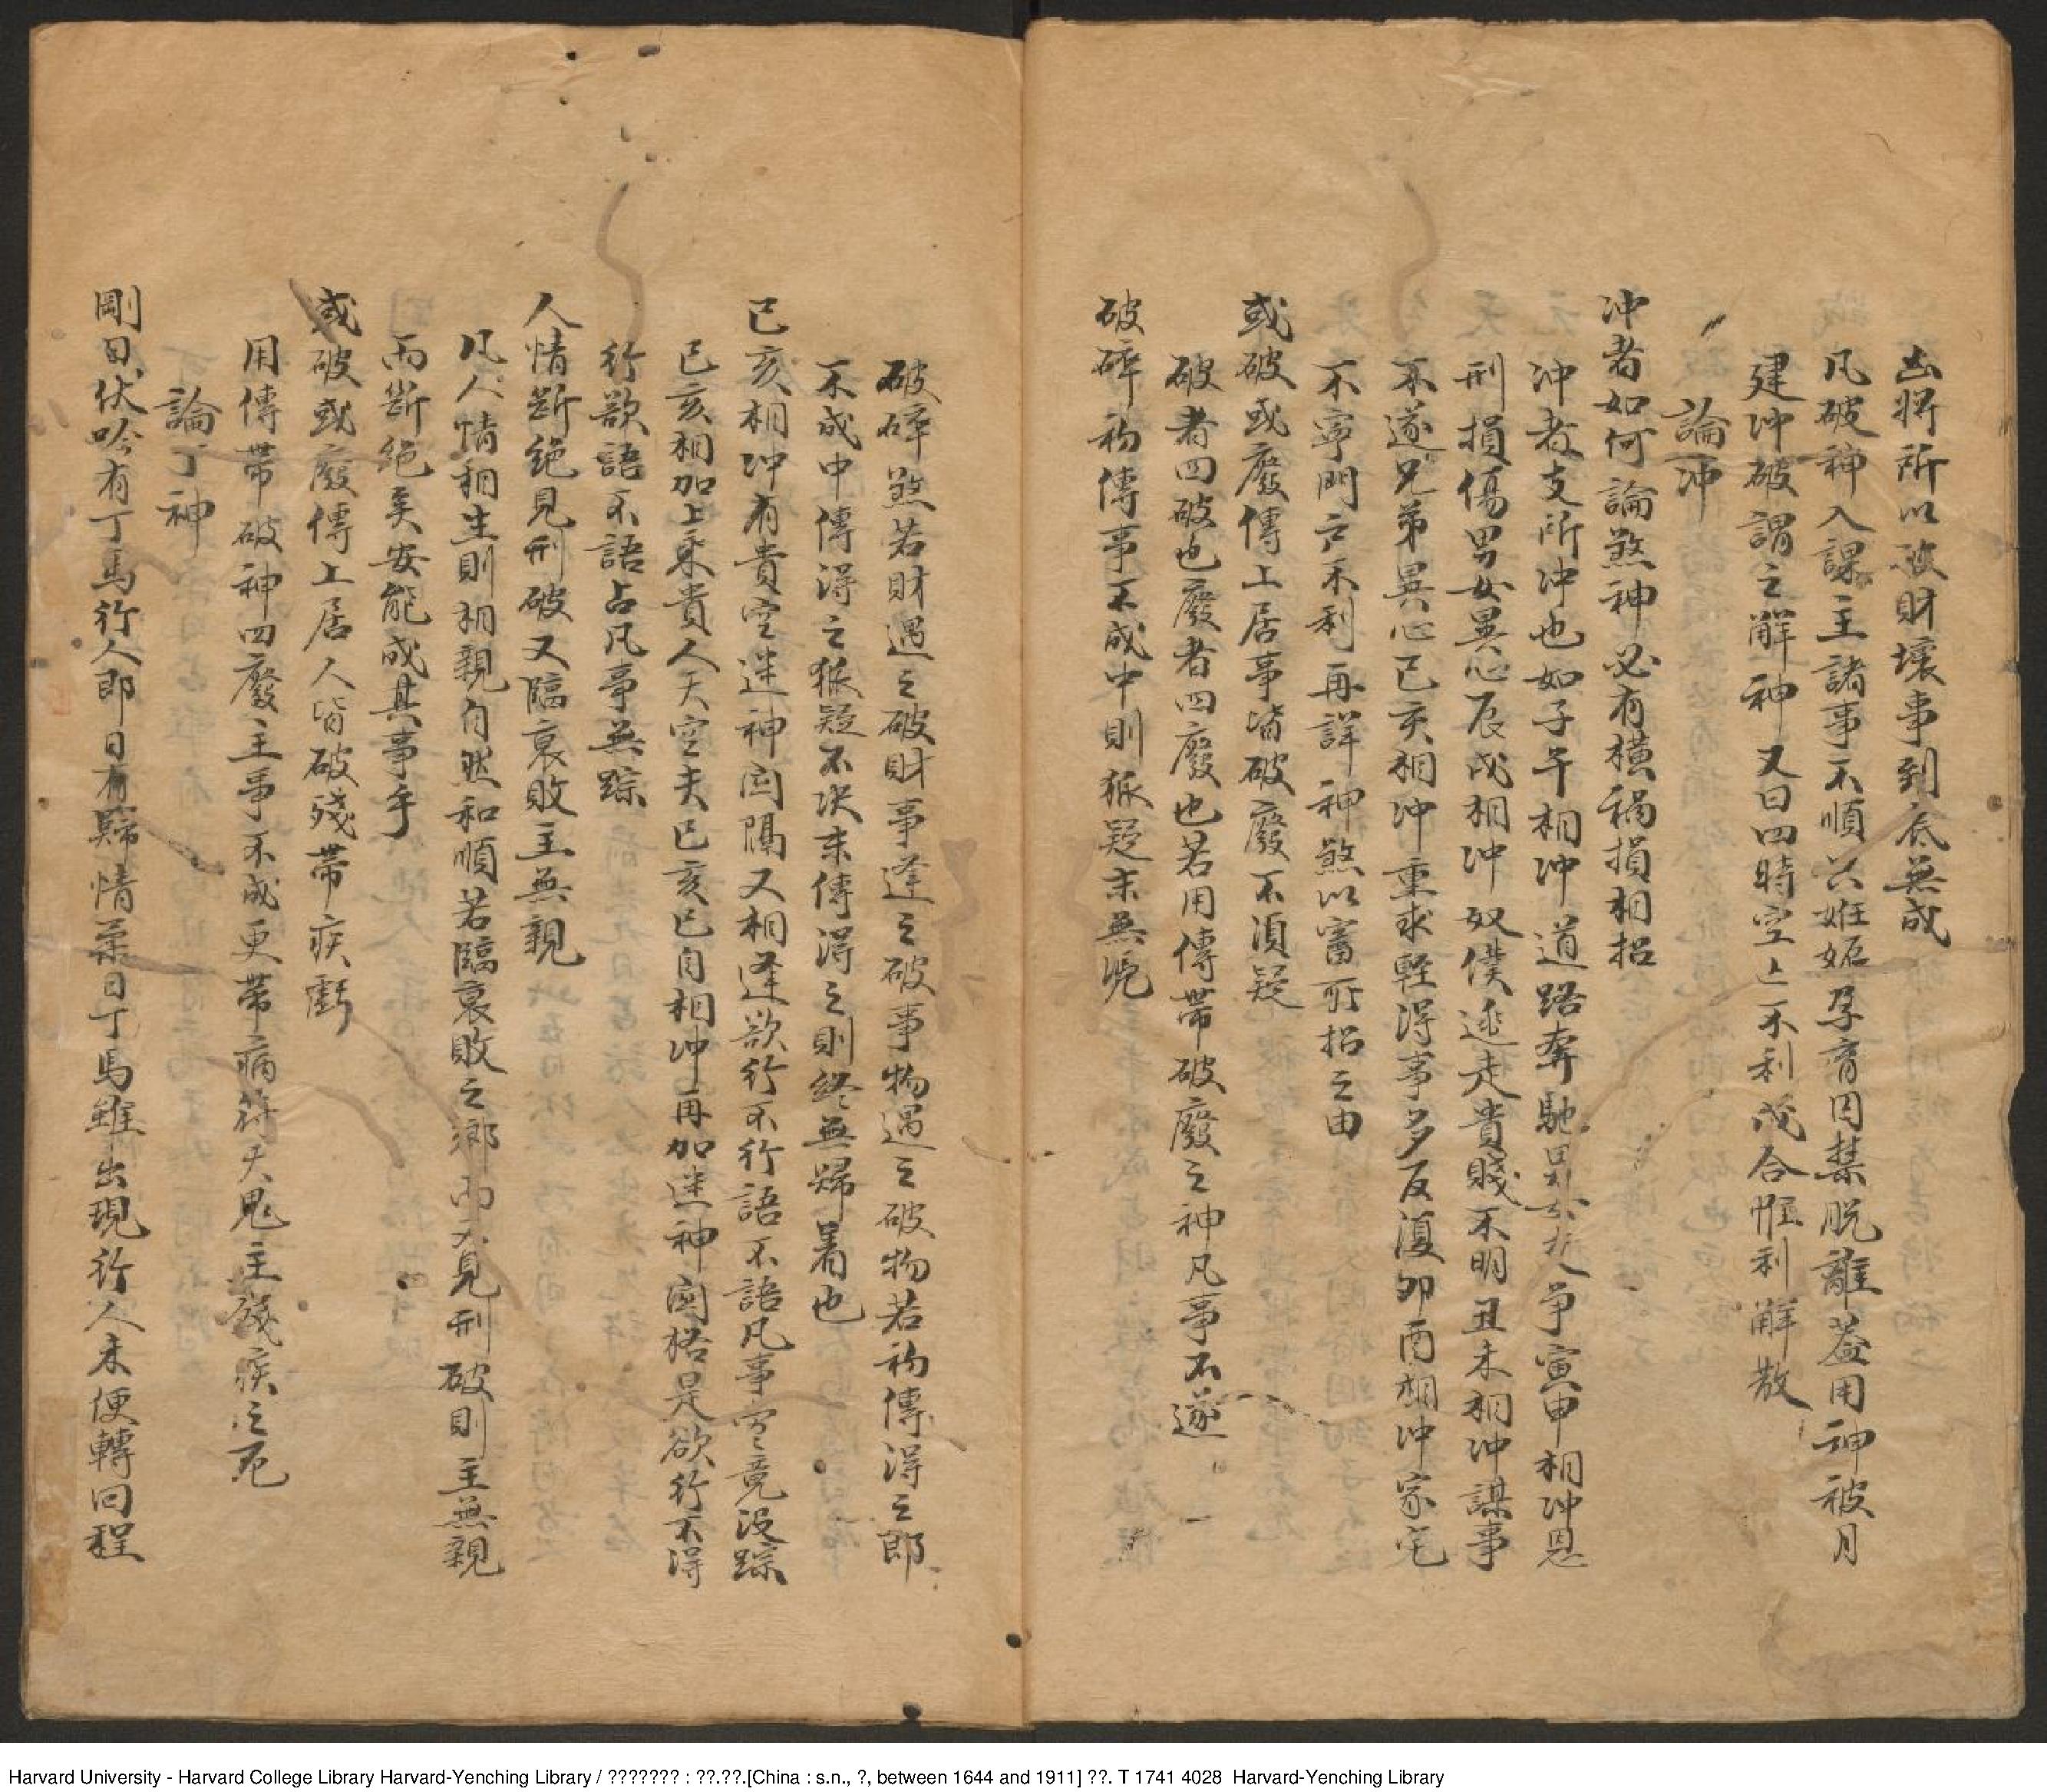 凶將所以破財壞事到底無成
凡破神入課主諸事不順只姙娠孕育囚禁脫難葢用神被月
建沖破謂之解神又曰四時空亡不利成合惟利解散
論沖
沖者如何論煞神必有橫禍損相招
沖者支所沖也如子午相沖道路奔馳男女爭寅申相沖恩
刑損傷男女異心辰戌相沖奴僕逃走貴賤不明丑未相沖謀事
不遂兄弟異心巳亥相沖重求輕得事多反復卯酉相沖家宅
不寧門戶不利再詳神煞以審所招之由
或破或廢傳上居事皆破廢不須疑
破者四破也廢者四廢也若用傳帶破廢之神凡事不遂
破碎初傳事不成中則狐疑末無
破碎煞若財遇之破財事逢之破事物遇之破物若初傳得之郎
不成中傳得之狐疑不决末傳得之則終無歸着也
巳亥相沖有貴空迷神関隔又相逢欲行不行語不語凡事究竟沒踪
巳亥相加上乘貴人天空夫巳亥巳自相沖再加迷神関格是欲行不得
行欲語不語占凡事無踪
人情斷絕見刑破又臨衰敗主無親
凡人情相生則相親自然和順若臨衰敗之鄉而又見刑破則主無親
而斷絕矣安能成其事乎
或破或廢傳上居人皆破殘帶疾虧
用傳帶破神四廢主事不成更帶病符天鬼主殘疾之厄
論丁神
剛日伏吟有丁馬行人郎日有歸情柔日丁馬雖出現行人未便轉回程
Harvard University - Harvard College Library Harvard-Yenching Library / ??????? : ??.??.[China : s.n., ?, between 1644 and 1911] ??. T 1741 4028 Harvard-Yenching Library